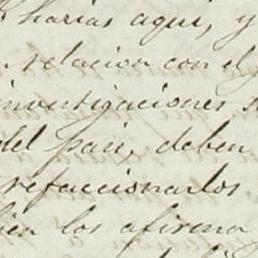 harias aqui, y
relacion con el
investigaciones
del pais, deben
refaccionarlos
los afirma